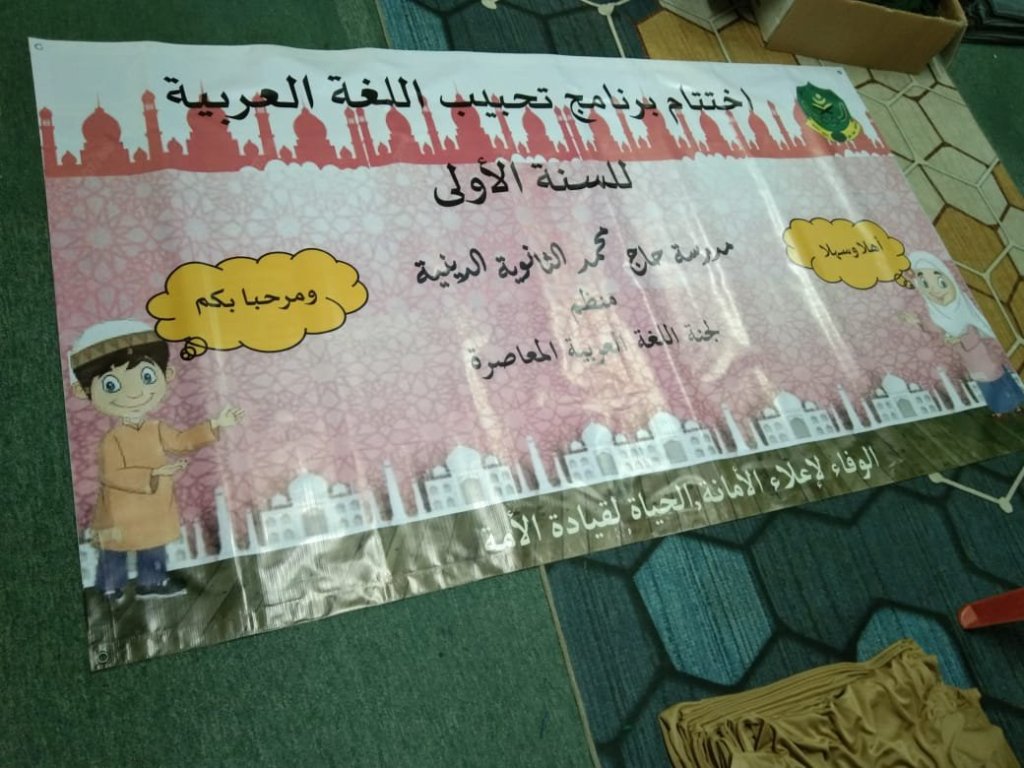 اختتام برنامج تحبيب اللغة العربية
للسنة الأولى
أهلا وسهلا
ومرحبا بكم
مدرسة حاج محمد الثانوية الدينية
منظم
لجنة اللغة العربية المعاصرة
الوفاء لإعلاء الأمانة,الحياة لقيادة الأمة